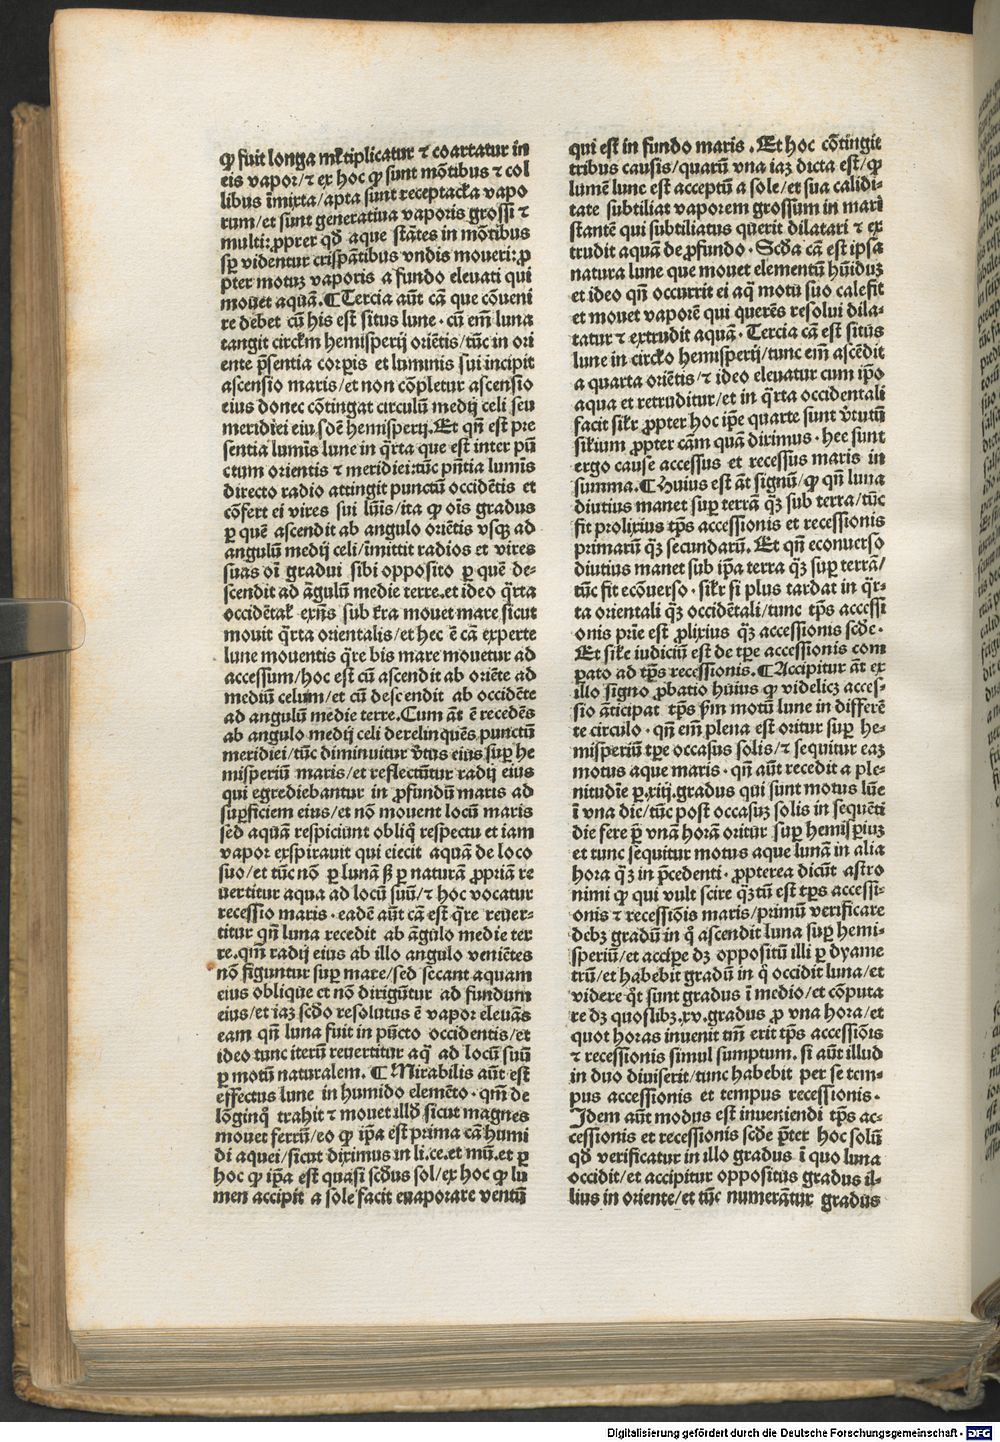 ꝙ fuit longa ml̃tiplicatur ⁊ coartatur in
eis vapor/⁊ ex hoc ꝙ sunt mõtibus ⁊ col
libus ĩmixta/apta sunt receptacl̃a vapo
rum/et sunt generatiua vaporis grossi ⁊
multi: ꝓprer qđ aque stãtes in mõtibus
sꝑ videntur crispãtibus vndis moueri: ꝓ
pter motuꝫ vaporis a fundo eleuati qui
mouet aquã. ¶ Tercia aũt cã que cõueni
re debet cũ his est situs lune . cũ em̃ luna
tangit circl̃m hemisperij oriẽtis/tũc in ori
ente p̃sentia corꝑis et luminis sui incipit
ascensio maris/et non cõpletur ascensio
eius donec cõtingat circulũ medij celi seu
meridiei eiusdẽ hemisperij. Et qñ est pre
sentia lumĩs lune in q̃rta que est inter pũ
ctum orientis ⁊ meridiei: tũc pñtia lumĩs
directo radio attingit punctũ occidẽtis et
cõfert ei vires sui lũĩs/ita ꝙ oĩs gradus
ꝑ quẽ ascendit ab angulo oriẽtis vsqꝫ ad
angulũ medij celi/ĩmittit radios et vires
suas oĩ gradui sibi opposito ꝑ quẽ de-
scendit ad ãgulũ medie terre. et ideo q̃rta
occidẽtal̃ exñs sub t̃ra mouet mare sicut
mouit q̃rta orientalis/et hec ẽ cã experte
lune mouentis q̃re bis mare mouetur ad
accessum/hoc est cũ ascendit ab oriẽte ad
mediũ celum/et cũ descendit ab occidẽte
ad angulũ medie terre. Cum aũt ẽ recedẽs
ab angulo medij celi derelinquẽs punctũ
meridiei/tũc diminuitur ṽtus eius suꝑ he
misperiũ maris/et reflectũtur radij eius
qui egrediebantur in ꝓfundũ maris ad
suꝑficiem eius/et nõ mouent locũ maris
sed aquã respiciunt obliq̃ respectu et iam
vapor exspirauit qui eiecit aquã de loco
suo/et tũc nõ ꝑ lunã sꝫ ꝑ naturã ꝓpriã re
uertitur aqua ad locũ suũ/⁊ hoc vocatur
recessio maris . eadẽ aũt cã est q̃re reuer-
titur qñ luna recedit ab ãgulo medie ter
re. qm̃ radij eius ab illo angulo veniẽtes
nõ figuntur suꝑ mare/sed secant aquam
eius oblique et nõ dirigũtur ad fundum
eius/et iaꝫ scđo resolutus ẽ vapor eleuãs
eam qñ luna fuit in pũcto occidentis/et
ideo tunc iterũ reuertitur aq̃ ad locũ suũ
ꝑ motũ naturalem. ¶ Mirabilis aũt est
effectus lune in humido elemẽto . qm̃ de
lõginq̃ trahit ⁊ mouet illđ sicut magnes
mouet ferrũ/eo ꝙ ip̃a est prima cã humi
di aquei/sicut diximus in li. ce. et mũ. et ꝑ
hoc ꝙ ip̃a est quasi scđus sol/ex hoc ꝙ lu
men accipit a sole facit euaporare ventũ
qui est in fundo maris . Et hoc cõtingit
tribus causis/quarũ vna iaꝫ dicta est/ꝙ
lumẽ lune est acceptũ a sole/et sua calidi-
tate subtiliat vaporem grossum in mari
stantẽ qui subtiliatus querit dilatari ⁊ ex
trudit aquã de ꝓfundo . Scđa cã est ipsa
natura lune que mouet elementũ hũiduꝫ
et ideo qñ occurrit ei aq̃ motu suo calefit
et mouet vaporẽ qui querẽs resolui dila-
tatur ⁊ extrudit aquã . Tercia cã est situs
lune in circl̃o hemisperij/tunc em̃ ascẽdit
a quarta oriẽtis/⁊ ideo eleuatur cum ip̃o
aqua et retruditur/et in q̃rta occidentali
facit sil̃r ꝓpter hoc ip̃e quarte sunt ṽtutũ
sil̃ium ꝓpter cãm quã dirimus . hee sunt
ergo cause accessus et recessus maris in
summa. ¶ Huius est ãt signũ/ꝙ qñ luna
diutius manet suꝑ terrã qꝫ̃ sub terra/tũc
fit prolixius tp̃s accessionis et recessionis
primarũ qꝫ̃ secundarũ. Et qñ econuerso
diutius manet sub ip̃a terra qꝫ̃ suꝑ terrã/
tũc fit ecõuerso . sil̃r si plus tardat in q̃r-
ta orientali qꝫ̃ occidẽtali/tunc tp̃s accessi
onis prĩe est ꝓlixius qꝫ̃ accessionis scđe.
Et sil̃e iudiciũ est de tp̃e accessionis com
ꝑato ad tp̃s recessionis. ¶ Accipitur ãt ex
illo signo ꝓbatio huius ꝙ videlicꝫ acces-
sio ãticipat tp̃s ẜm motũ lune in differẽ
te circulo . qñ em̃ plena est oritur suꝑ he-
misperiũ tp̃e occasus solis/⁊ sequitur eaꝫ
motus aque maris . qñ aũt recedit a ple-
nitudĩe ꝑ .xiij. gradus qui sunt motus lũe
ĩ vna die/tũc post occasuꝫ solis in sequẽti
die fere ꝑ vnã horã oritur suꝑ hemisꝑiuꝫ
et tunc sequitur motus aque lunã in alia
hora qꝫ̃ in p̃cedenti . ꝓpterea dicũt astro
nimi ꝙ qui vult scire qꝫ̃tũ est tp̃s accessi-
onis ⁊ recessiõis maris/primũ verificare
debꝫ gradũ in q̃ ascendit luna suꝑ hemi-
speriũ/et accipe dꝫ oppositũ illi ꝑ dyame
trũ/et habebit gradũ in q̃ occidit luna/et
videre q̃t sunt gradus ĩ medio/et cõputa
re dꝫ quoslibꝫ .xv. gradus ꝓ vna hora/et
quot horas inuenit tm̃ erit tp̃s accessiõis
⁊ recessionis simul sumptum. si aũt illud
in duo diuiserit/tunc habebit per se tem-
pus accessionis et tempus recessionis.
Idem aũt modus est inueniendi tp̃s ac-
cessionis et recessionis scđe p̃ter hoc solũ
qđ verificatur in illo gradus ĩ quo luna
occidit/et accipitur oppositus gradus il-
lius in oriente/et tũc numerãtur gradus
Digitalisierung gefördert durch die Deutsche Forschungsgemeinschaft - DFG